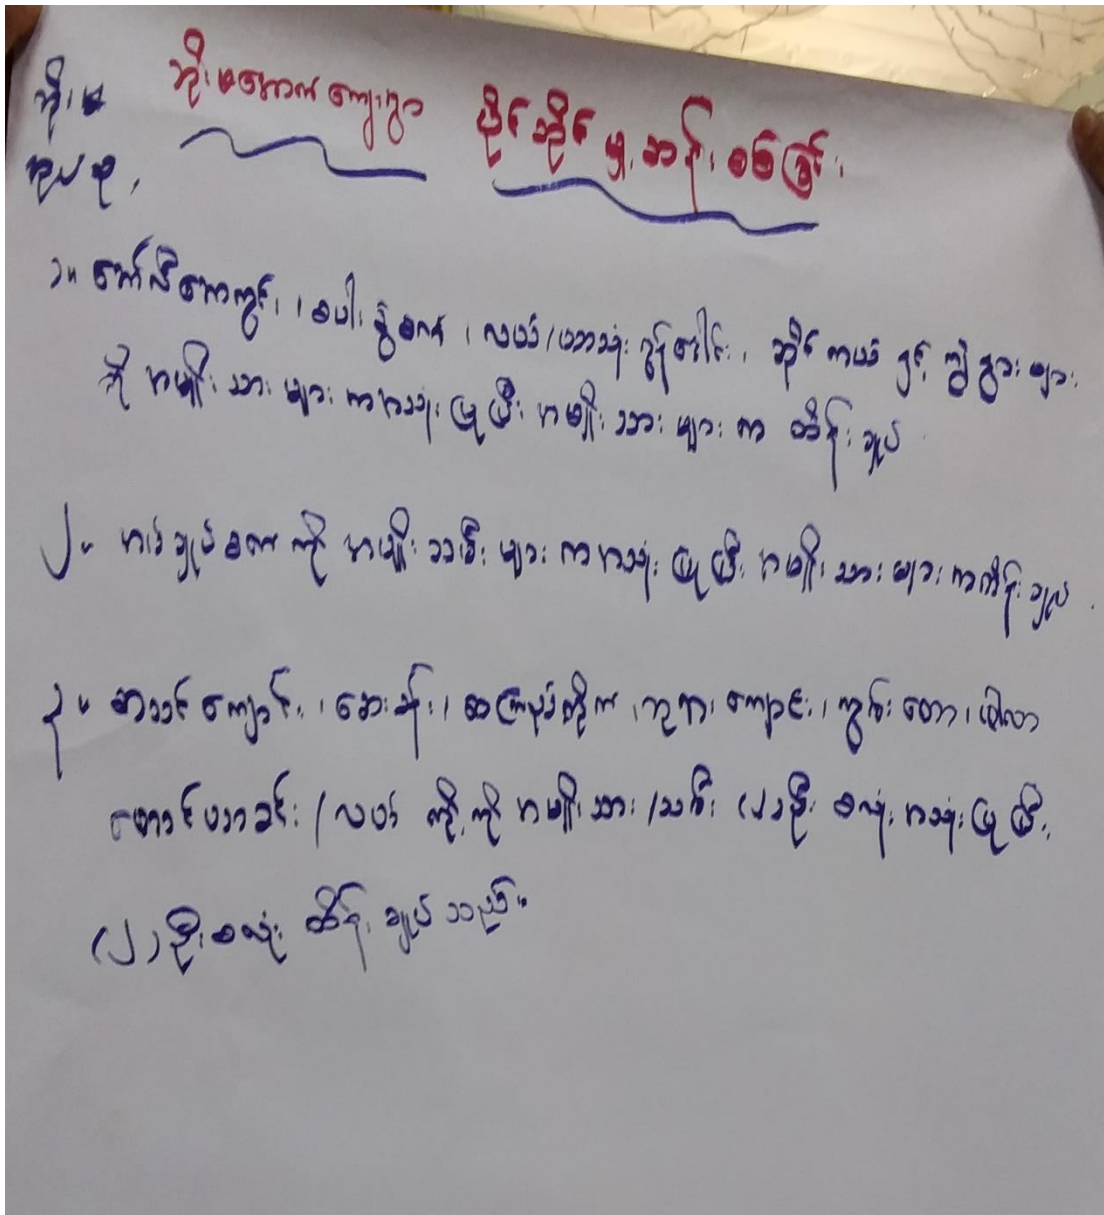 ဘိုးမ
အုပ်စု၊
ဘိုးမအောက်ကျေးရွာ ပိုင်ဆိုင်မှု ဆန်းစစ်ခြင်း
၁။ ဘော်လီဘောကွင်း၊ စပါးကြိတ်စက်၊ လယ်/ယာသုံး ထွန်တုံး၊ ဆိုင်ကယ် နှင့် ကျွဲနွားများ
ကို အမျိုးသားများကအသုံးပြုပြီး အမျိုးသားများက ထိန်းချုပ်
၂။ အပ်ချုပ်စက်ကို အမျိုးသမီးများကအသုံးပြုပြီး အမျိုးသားများကထိန်းချုပ်
၃။ စာသင်ကျောင်း၊ ဆေးခန်း၊ ဘုရားကျောင်း၊ ကွမ်းတော၊ ဖါလာ
တောင်ယာခင်း/လယ် တို့ကို အမျိုးသား/သမီး (၂)ဦးစလုံး အသုံးပြုပြီး
(၂)ဦးစလုံး ထိန်းချုပ်သည်။